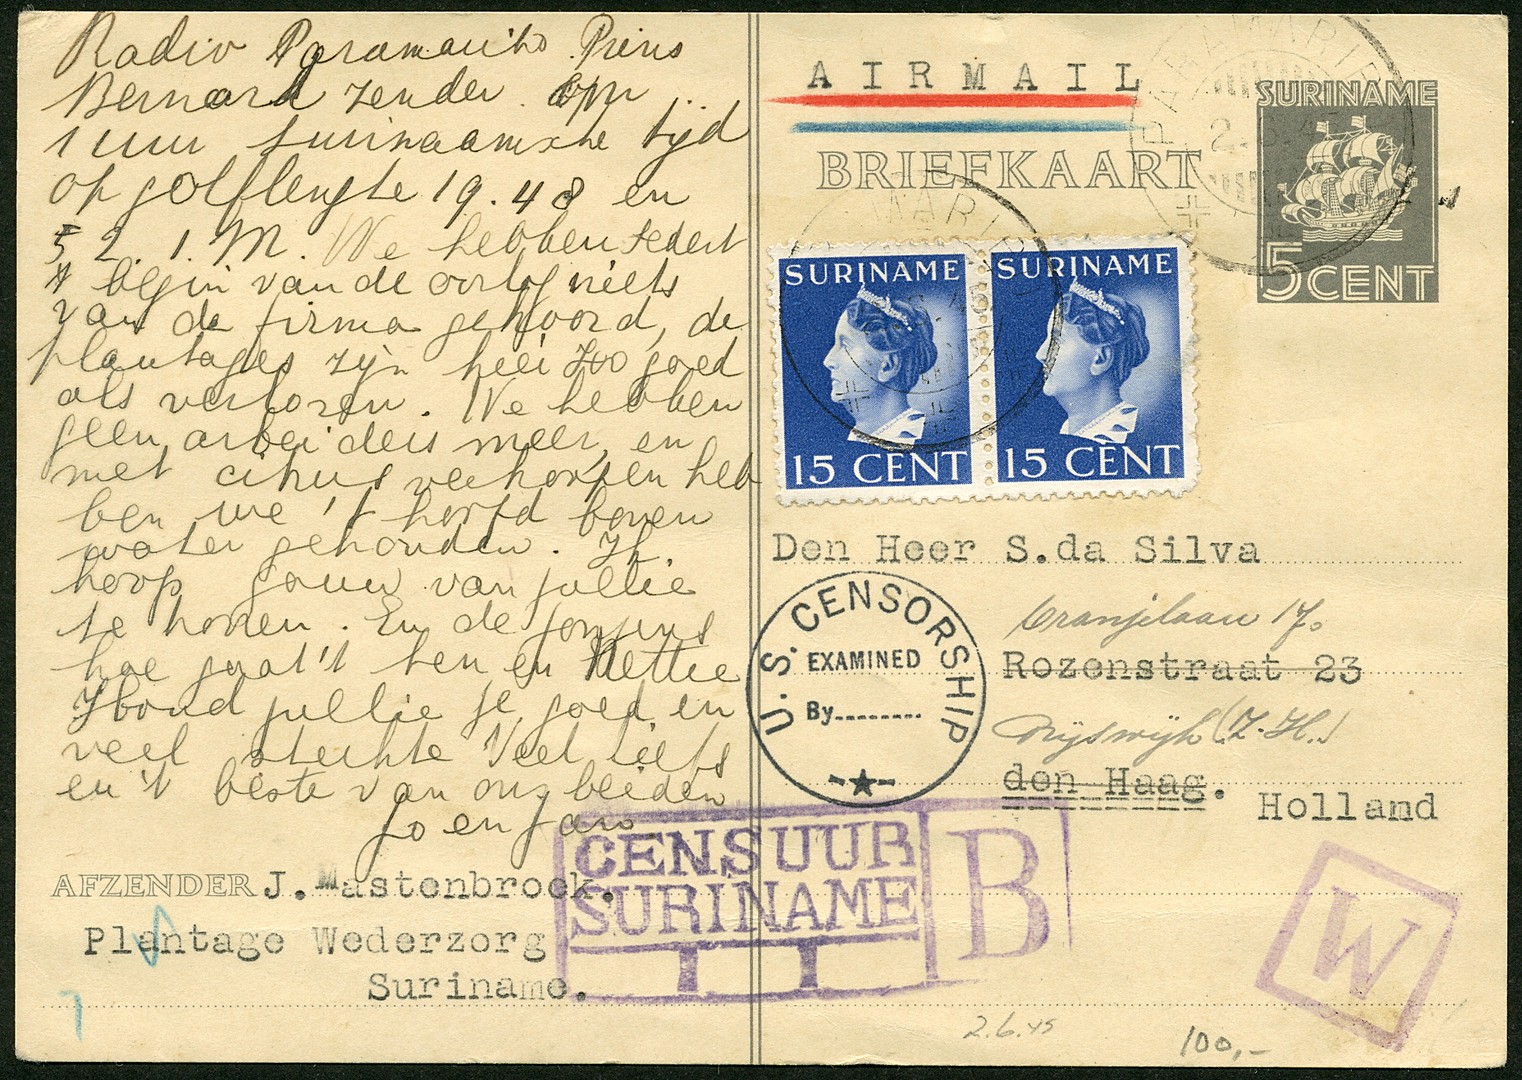 Radio Paramaribo Prins
Bernard zender. Om
1 uur surinaamsche tijd
op golflengte 19.48 en
52.1.M. We hebben sedert
't begin van de oorlog niets
van de firma gehoord, de
plantages zijn heel zoo goed
als verloren. We hebben
geen arbeiders meer, en
met citrus verkoopen heb
ben we 't hoofd boven
water gehouden. Ik
hoop gouw van jullie
te horen. En de jongens
hoe gaat 't hen en Nettie
Houd jullie je goed, en
veel sterkte Veel liefs
en 't beste van ons beiden
Jo en Jan
AFZENDER J. Mastenbroek.
Plantage Wederzorg
Suriname.
AIRMAIL
BRIEFKAART
SURINAME
5 CENT
PARAMARIBO
2.6.45
SURINAME
15 CENT
SURINAME
15 CENT
Den Heer S.da Silva
Oranjelaan 17.
Rozenstraat 23
Rijswijk (Z.H.)
den Haag.
Holland
U.S. CENSORSHIP
EXAMINED
By........
CENSUUR
SURINAME
11
B
W
2.6.45
100,-